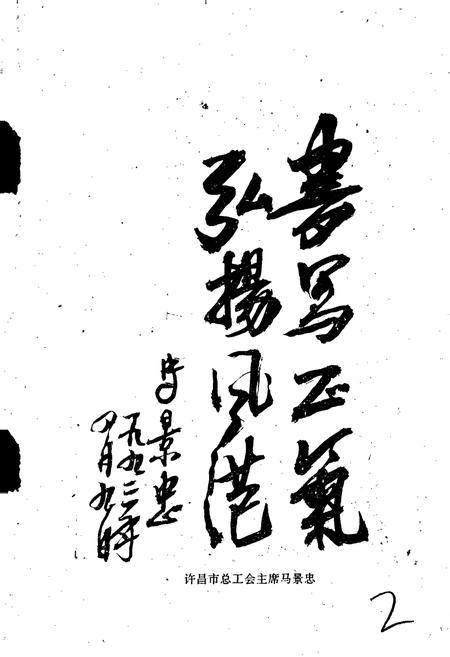 書写正氣
弘揚风范
马景忠
一九九三年
四月九日
许昌市总工会主席马景忠
2